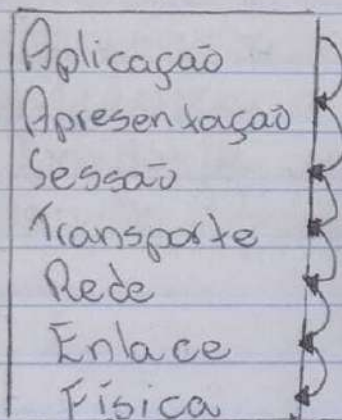 Aplicação
Apresentação
Sessão
Transporte
Rede
Enlace
Física